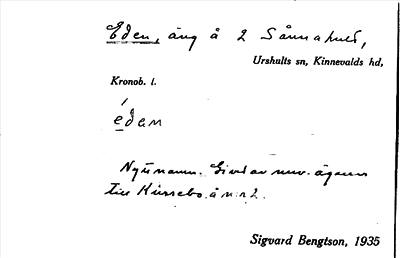 Eden, äng å 2 Sånnahult,
Urshults sn, Kinnevalds hd,
Kronob. l.
edan
Nytt namn. Givet av nuv. ägaren
till Hissebo å n:r 2.
Sigvard Bengtson, 1935